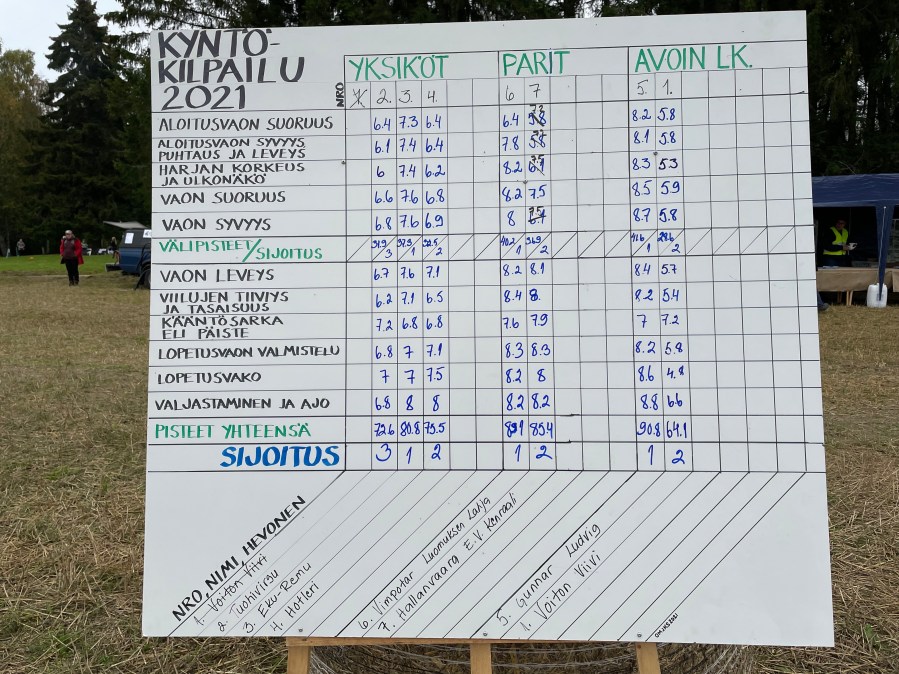 KYNTÖ-
KILPAILU
2021
YKSIKÖT PARIT AVOIN LK.
NRO 1 2. 3. 4. 6 7 5. 1.
ALOITUSVAON SUORUUS 6.4 7.3 6.4 6.4 7.3 5.8 8.2 5.8
ALOITUSVAON SYVYYS
PUHTAUS JA LEVEYS 6.1 7.4 6.4 7.8 5.8 8.1 5.8
HARJAN KORKEUS
JA ULKONÄKÖ 6 7.4 6.2 8.2 7.5 8.3 5.3
VAON SUORUUS 6.6 7.6 6.8 8.2 7.5 8.5 5.9
VAON SYVYYS 6.8 7.6 6.9 8 7.5 6.7 8.7 5.8
VÄLIPISTEET/SIJOITUS 31.9/3 37.3/1 32.5/2 40.2/1 36.9/2 41.6/1 28.6/2
VAON LEVEYS 6.7 7.6 7.1 8.2 8.1 8.4 5.7
VIILUJEN TIIVIYS
JA TASAISUUS 6.2 7.1 6.5 8.4 8. 8.2 5.4
KÄÄNTÖSARKA
ELI PÄISTE 7.2 6.8 6.8 7.6 7.9 7 7.2
LOPETUSVAON VALMISTELU 6.8 7 7.1 8.3 8.3 8.2 5.8
LOPETUSVAKO 7 7 7.5 8.2 8 8.6 4.8
VALJASTAMINEN JA AJO 6.8 8 8 8.2 8.2 8.8 6.6
PISTEET YHTEENSÄ 72.6 80.8 75.5 89.1 85.4 90.8 64.1
SIJOITUS 3 1 2 1 2 1 2
NRO, NIMI, HEVONEN
1. Voiton Viivi
2. Tuohivirsu
3. Eku-Remu
4. Hotleri
6. Vimpotar Luomuksen Lahja
7. Hallanvaara E.V. Kenraali
5. Gunnar Ludvig
1. Voiton Viivi